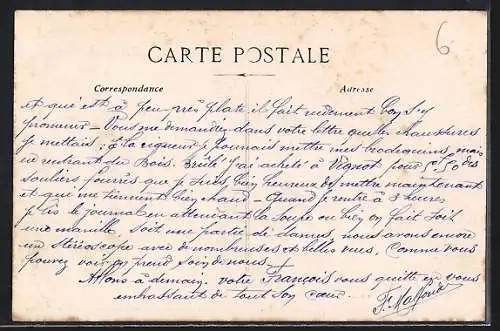 6
CARTE POSTALE
Correspondance
Adresse
et qui est à peu près plate il fait rudement bon s'y
promener - Vous me demandez dans votre lettre quelles chaussures
je mettais ; à la rigueur je pouvais mettre mes brodequins, mais
en rentrant du Bois Brûlé j'ai acheté à Vignot pour 50 des
souliers fourrés que je suis bien heureux de mettre maintenant
et qui me tiennent bien chaud - Quand je rentre à 5 heures
je lis le journal en attendant la soupe ou bien on fait soit
une manille, soit une partie de dames, nous avons encore
un stéréoscope avec de nombreuses et belles vues. Comme vous
pouvez voir on prend soin de nous.
Allons à demain. votre François vous quitte en vous
embrassant de tout son cœur.